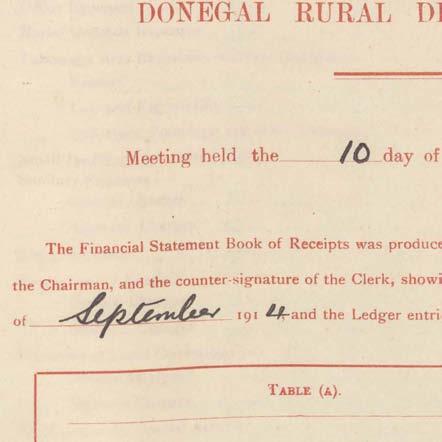 DONEGAL RURAL
Meeting held the 10 day of
The Financial Statement Book of Receipts was produce
the Chairman, and the counter-signature of the Clerk, showi
of September 1914 and the Ledger entri
TABLE (A).